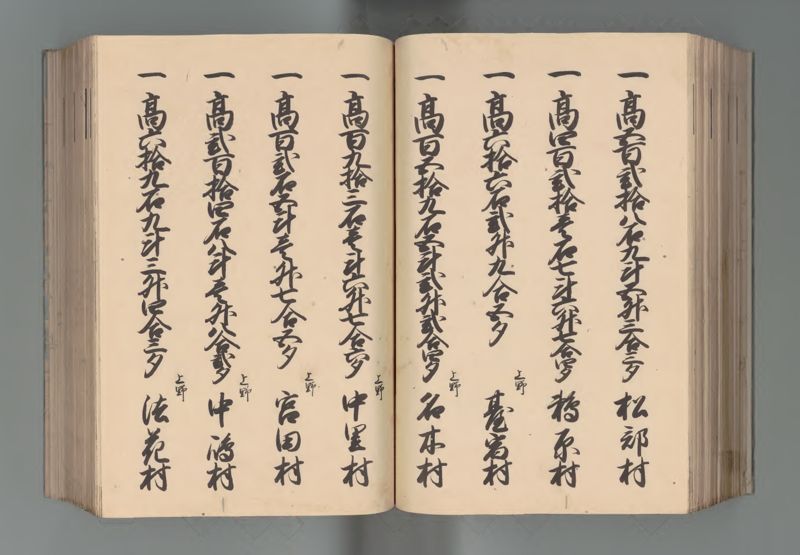 一 高五百弐拾八石九斗五升三合三夕 松部村
一 高四百弐拾壱石七斗六升七合四夕 鵜原村
一 高六拾六石弐升九合五夕 上野 台宿村
一 高百五拾九石五斗弐升弐合四夕 上野 名木村
一 高百九拾三石壱斗六升七合六夕 上野 中里村
一 高百弐石五斗壱升七合五夕 上野 宮田村
一 高弐百拾四石八斗壱升八合弐夕 上野 中嶋村
一 高六拾九石九斗三升四合三夕 上野 法花村